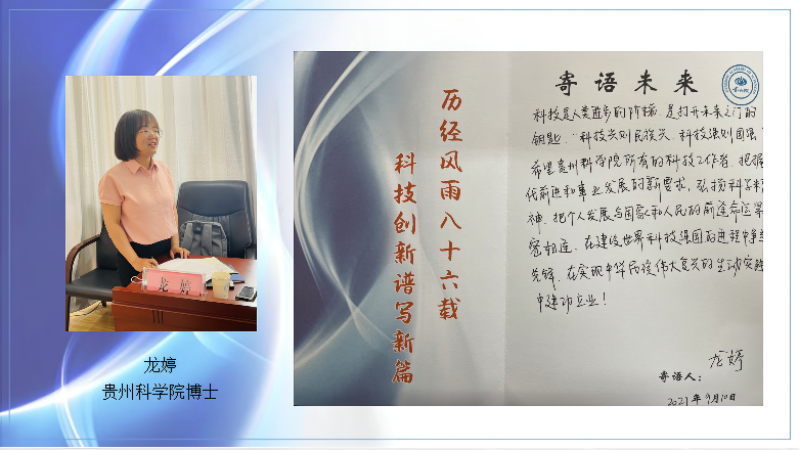 龙 婷
龙婷
贵州科学院博士
历经风雨八十六载
科技创新谱写新篇
寄语未来
科技是人类进步的阶梯，是打开未来之门的
钥匙。“科技兴则民族兴，科技强则国强
希望贵州科学院所有的科技工作者，把握
代前进和事业发展的新要求，弘扬科学
神，把个人发展与国家和人民的前途命运
密相连，在建设世界科技强国的进程中争
先锋，在实现中华民族伟大复兴的生动实践
中建功立业！
龙婷
寄语人：
2021年9月10日